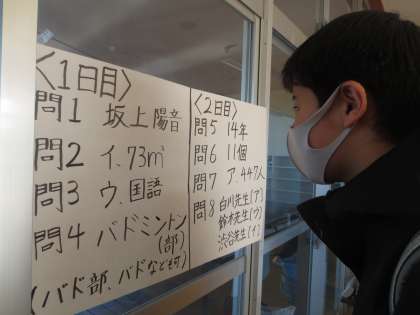 〈1日目〉
問1 坂上陽音
問2 イ.73㎡
問3 ウ.国語
問4 バドミントン
(部)
(バド部、バドなども可)
〈2日目〉
問5 14年
問6 11個
問7 ア.447人
問8 白川先生(ア)
鈴木先生(ウ)
渋谷先生(イ)